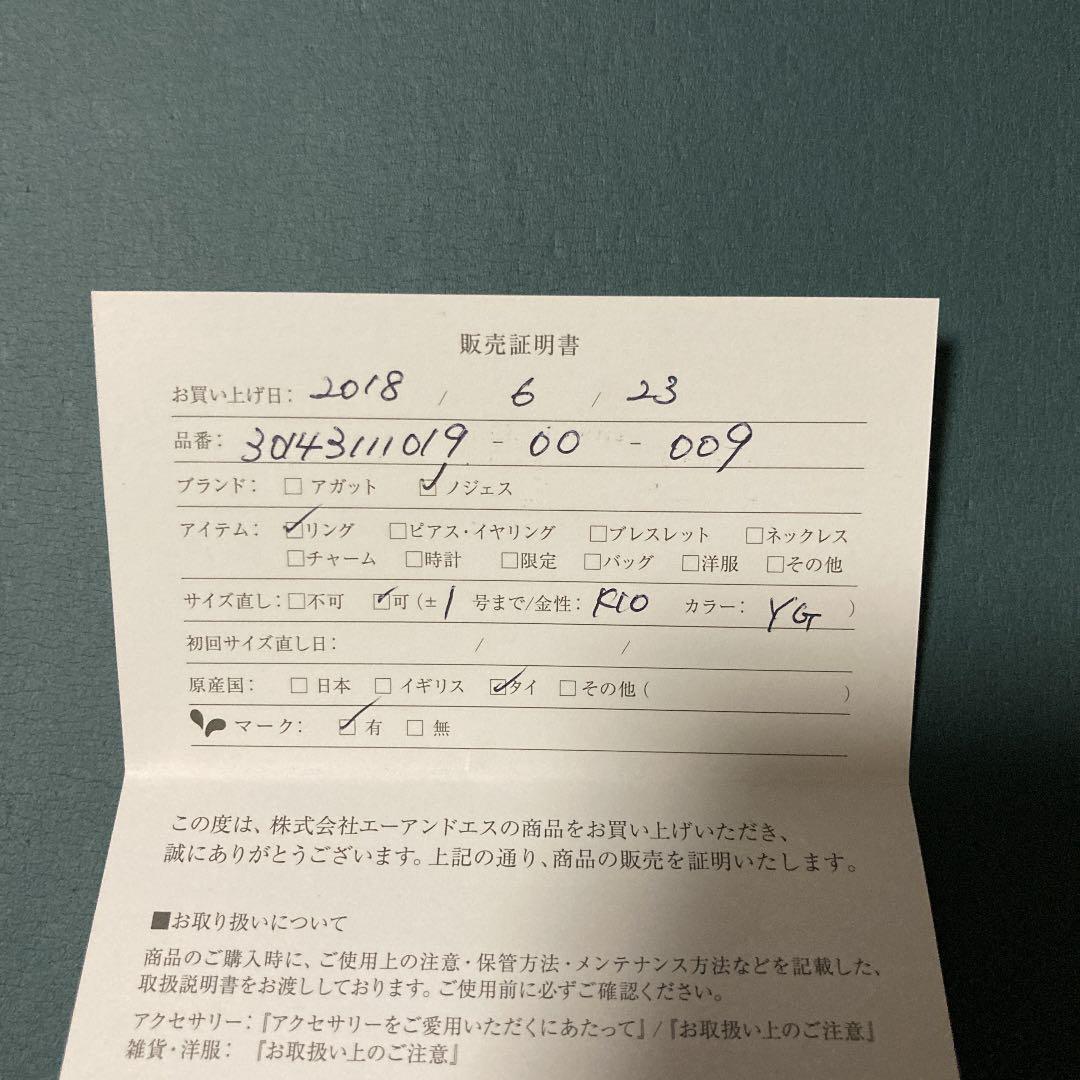 販売証明書
お買い上げ日： 2018 / 6 / 23
品番： 30143111019 - 00 - 009
ブランド： □ アガット ☑ ノジェス
アイテム： ☑リング □ピアス・イヤリング □ブレスレット □ネックレス
□チャーム □時計 □限定 □バッグ □洋服 □その他
サイズ直し：□不可 ☑可（± 1 号まで/金性： K10 カラー： YG ）
初回サイズ直し日： / /
原産国： □ 日本 □ イギリス ☑タイ □ その他（ ）
マーク： ☑ 有 □ 無
この度は、株式会社エーアンドエスの商品をお買い上げいただき、
誠にありがとうございます。上記の通り、商品の販売を証明いたします。
■お取り扱いについて
商品のご購入時に、ご使用上の注意・保管方法・メンテナンス方法などを記載した、
取扱説明書をお渡ししております。ご使用前に必ずご確認ください。
アクセサリー：『アクセサリーをご愛用いただくにあたって』/『お取扱い上のご注意』
雑貨・洋服： 『お取扱い上のご注意』